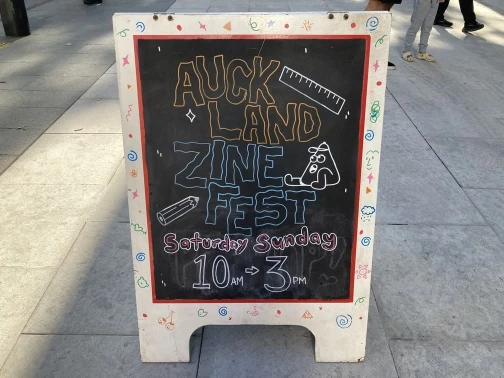 AUCK
LAND
ZINE
FEST
Saturday Sunday
10AM → 3PM